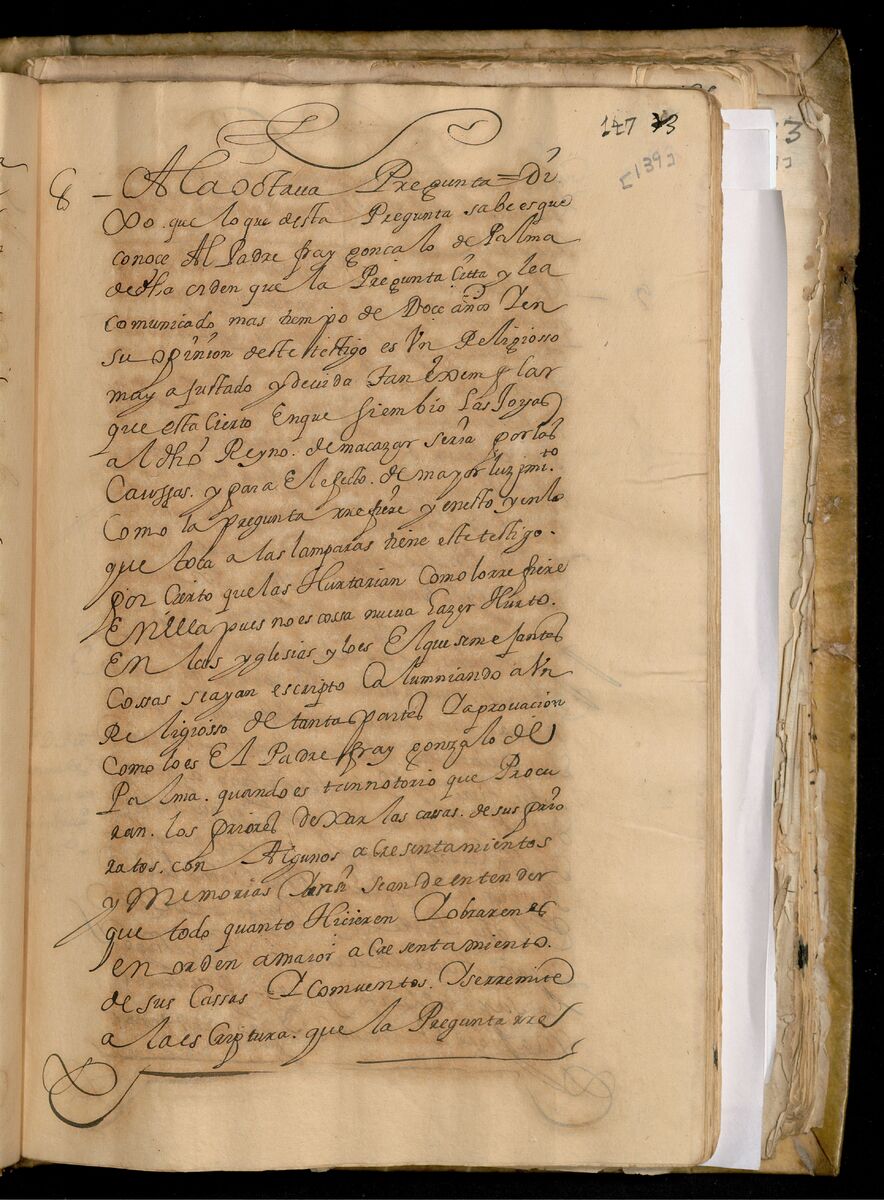 147 33
[139]
8 - A la octaua Pregunta = Di
xo. que lo que desta Pregunta sabe es que
conoce Al Padre fray goncalo de Palma
de dha orden que la Pregunta Citta y lea
comunicado mas tiempo de Doce años Y en
su opinion deste testigo es Vn Religiosso
muy ajustado y de vida tan exemplar
que esta Cierto En que si embio Las Joyas
al dho Reyno. de macazar seria por las
Caussas. y para El efecto. de mayor luzimto.
Como la pregunta rrefiere y en esto y en lo
que toca a las lamparas tiene este testigo.
por Cierto que las Hurtarian como lo rrefiere
En ella pues no es cossa nueua hazer Hurto.
En las yglesias y lo es El que semejantes
Cossas se ayan escripto Calumniando a Vn
Religiosso de tantas partes Y aprouacion
como lo es El Padre fray gonzalo de
Palma. quando es tan notorio que Procu
ran. los priores dexar las cassas. de sus prio
ratos. con Algunos acresentamientos
y Memorias Y assi se an de entender
que todo quanto Hicieren Y obraren es
en orden a maior acresentamiento.
de sus Cassas Y comuentos. Y se rremite
a la escriptura. que la Pregunta rre